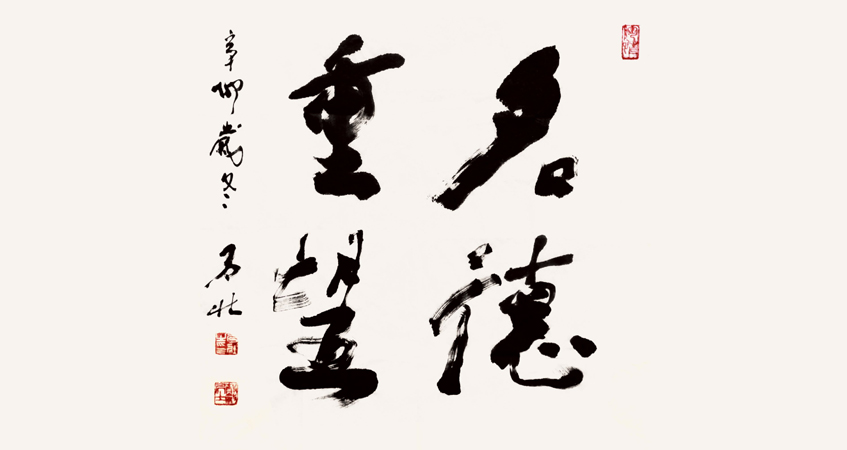 名德
重望
辛卯歲冬